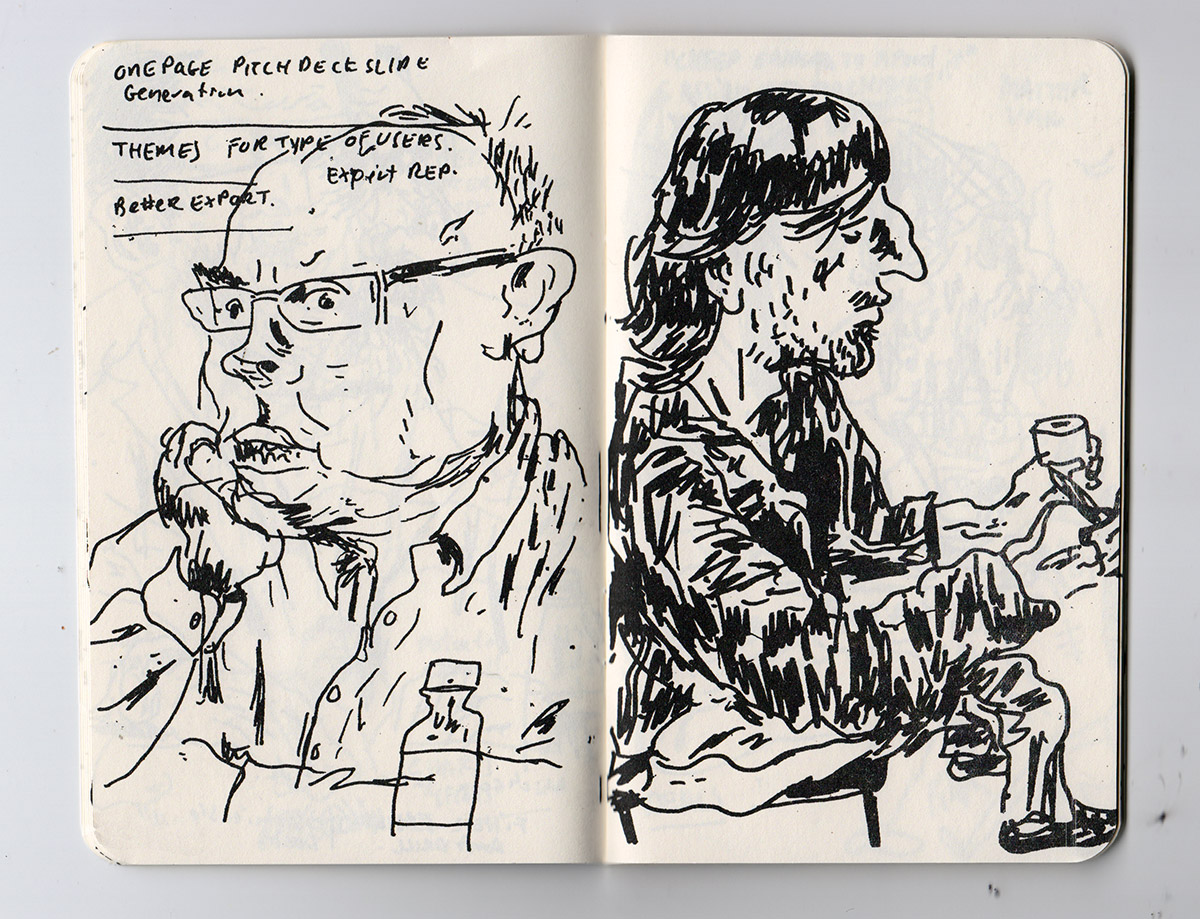 ONE PAGE PITCH DECK SLIDE
Generation.
THEMES FOR TYPE OF USERS.
Expict REP.
Better EXPORT.